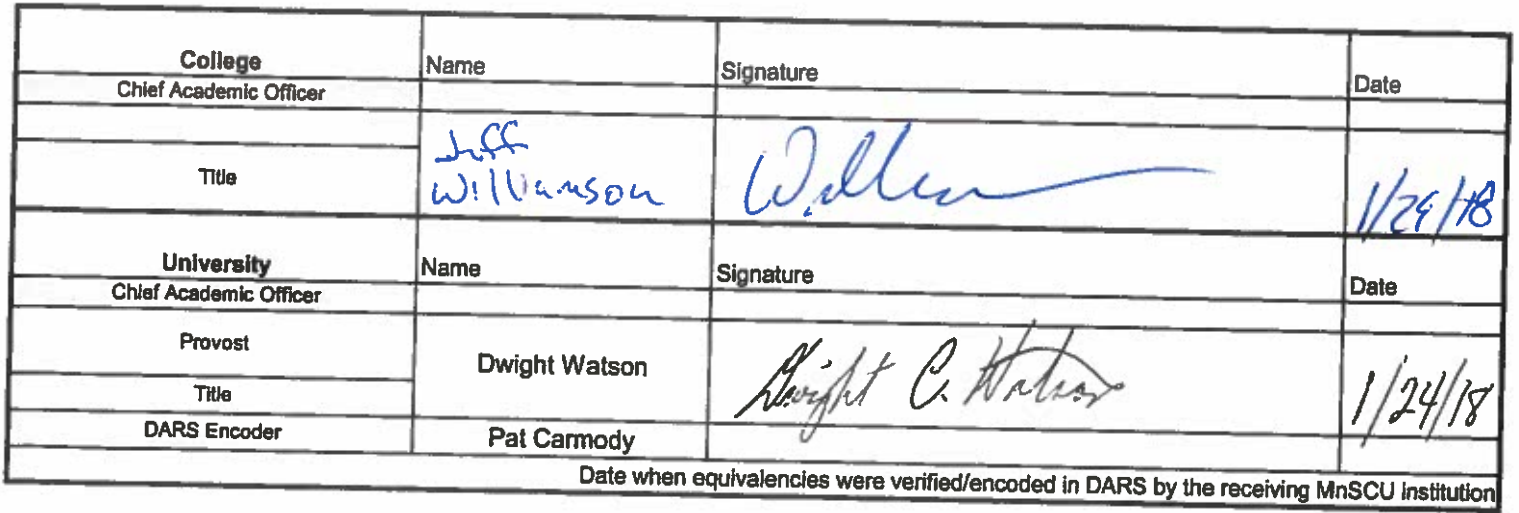 College Name Signature Date
Chief Academic Officer
Title Jeff Williamson 1/29/18
University Name Signature Date
Chief Academic Officer
Provost
Dwight Watson Dwight C. Watson 1/24/18
Title
DARS Encoder Pat Carmody
Date when equivalencies were verified/encoded in DARS by the receiving MnSCU institution